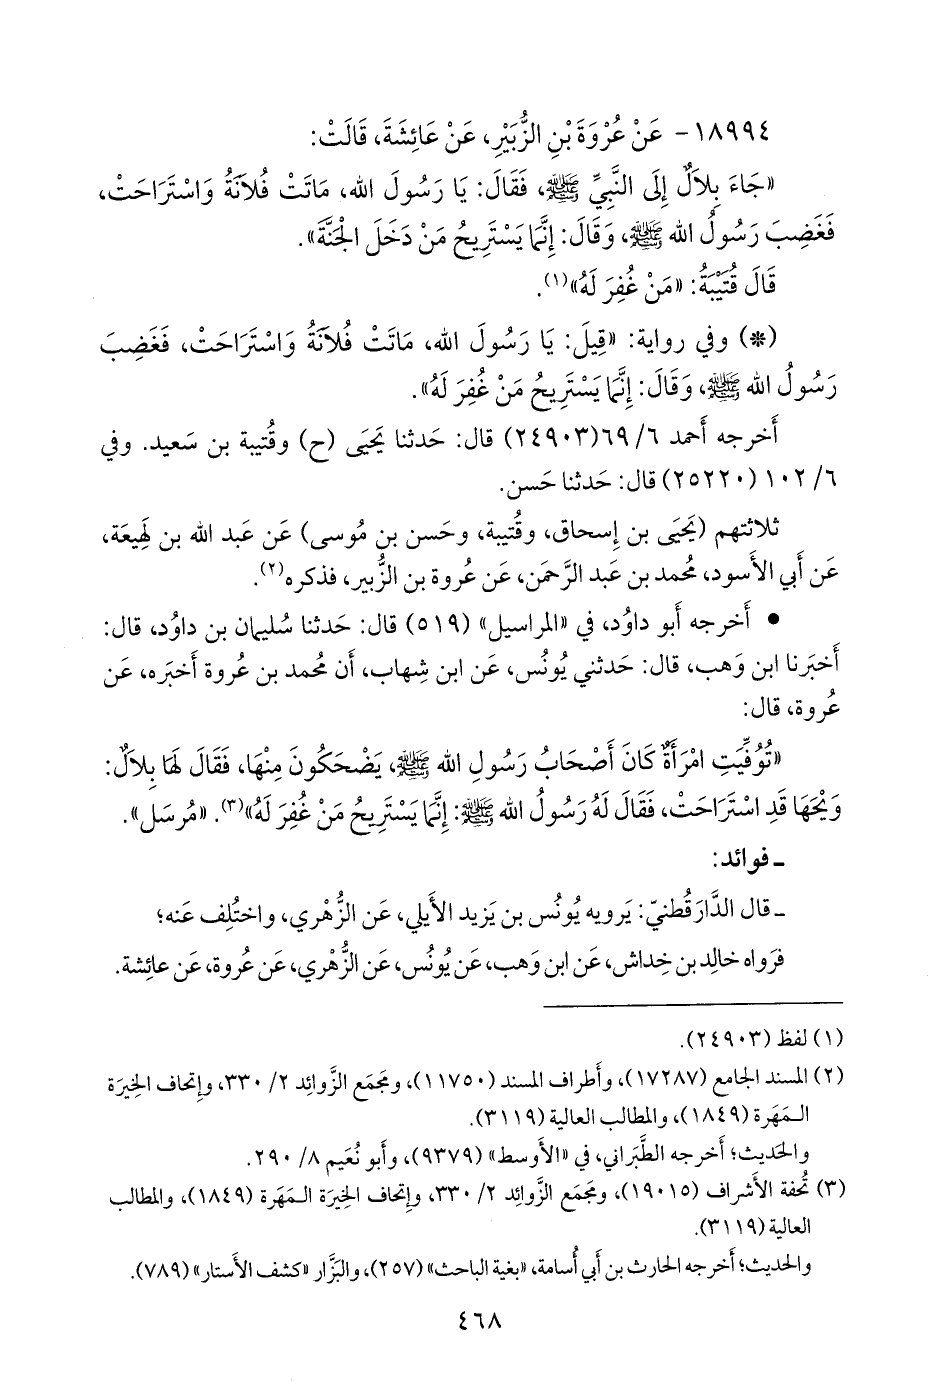 ١٨٩٩٤- عَنْ عُرْوَةَ بْنِ الزُّبَيْرِ، عَنْ عَائِشَةَ، قَالَتْ:
«جَاءَ بِلَالٌ إِلَى النَّبِيِّ ﷺ، فَقَالَ: يَا رَسُولَ الله، مَاتَتْ فُلَانَةُ وَاسْتَرَاحَتْ،
فَغَضِبَ رَسُولُ الله ﷺ، وَقَالَ: إِنَّمَا يَسْتَرِيحُ مَنْ دَخَلَ الْجَنَّةَ».
قَالَ قُتَيْبَةُ: «مَنْ غُفِرَ لَهُ»(١).
(*) وفي رواية: «قِيلَ: يَا رَسُولَ الله، مَاتَتْ فُلَانَةُ وَاسْتَرَاحَتْ، فَغَضِبَ
رَسُولُ الله ﷺ، وَقَالَ: إِنَّمَا يَسْتَرِيحُ مَنْ غُفِرَ لَهُ».
أَخرجه أَحمد ٦/ ٦٩ (٢٤٩٠٣) قال: حَدثنا يَحيَى (ح) وقُتيبة بن سَعيد. وفي
٦/ ١٠٢ (٢٥٢٢٠) قال: حَدثنا حَسن.
ثلاثتهم (يَحيَى بن إِسحاق، وقُتيبة، وحَسن بن مُوسى) عَن عَبد الله بن لَهِيعَة،
عَن أَبي الأَسود، مُحمد بن عَبد الرَّحمَن، عَن عُروة بن الزُّبير، فذكره(٢).
• أَخرجه أَبو داوُد، في «المراسيل» (٥١٩) قال: حَدثنا سُليمان بن داوُد، قال:
أَخبَرنا ابن وَهب، قال: حَدثني يُونُس، عَن ابن شِهاب، أَن مُحمد بن عُروة أَخبَره، عَن
عُروة، قال:
«تُوُفِّيَتِ امْرَأَةٌ كَانَ أَصْحَابُ رَسُولِ الله ﷺ، يَضْحَكُونَ مِنْهَا، فَقَالَ لَهَا بِلَالٌ:
وَيْحَهَا قَدِ اسْتَرَاحَتْ، فَقَالَ لَهُ رَسُولُ الله ﷺ: إِنَّمَا يَسْتَرِيحُ مَنْ غُفِرَ لَهُ»(٣). «مُرسَل».
ـ فوائد:
ـ قال الدَّارَقُطنيّ: يَرويه يُونُس بن يَزيد الأَيلي، عَن الزُّهْري، واختُلِف عَنه؛
فرَواه خالِد بن خِداش، عَن ابن وَهب، عَن يُونُس، عَن الزُّهْري، عَن عُروة، عَن عائِشة.
(١) لفظ (٢٤٩٠٣).
(٢) المسند الجامع (١٧٢٨٧)، وأَطراف المسند (١١٧٥٠)، ومَجمَع الزَّوائِد ٢/ ٣٣٠، وإِتحاف الخِيرَة
المَهَرة (١٨٤٩)، والمطالب العالية (٣١١٩).
والحَديث؛ أَخرجه الطَّبَراني، في «الأَوسط» (٩٣٧٩)، وأَبو نُعَيم ٨/ ٢٩٠.
(٣) تُحفة الأَشراف (١٩٠١٥)، ومَجمَع الزَّوائِد ٢/ ٣٣٠، وإِتحاف الخِيرَة المَهَرة (١٨٤٩)، والمطالب
العالية (٣١١٩).
والحَديث؛ أَخرجه الحارث بن أَبي أُسامة، «بغية الباحث» (٢٥٧)، والبَزَّار «كشف الأَستار» (٧٨٩).
٤٦٨